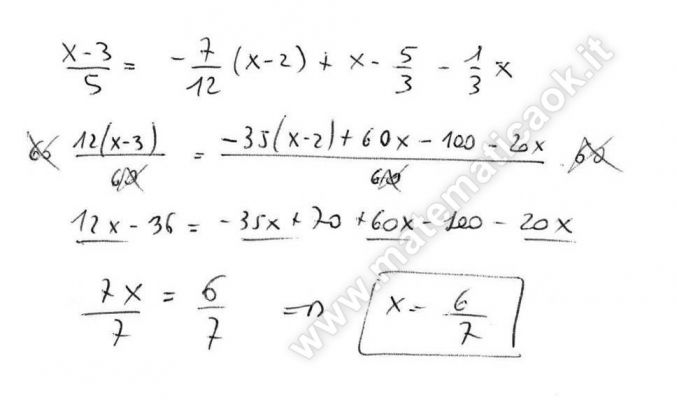 (x-3)/5 = -7/12 (x-2) + x - 5/3 - 1/3 x
60 12(x-3)/60 = (-35(x-2) + 60x - 100 - 20x)/60 · 60
12x - 36 = -35x + 70 + 60x - 100 - 20x
7x/7 = 6/7 ⇒ x = 6/7
www.matematicaok.it